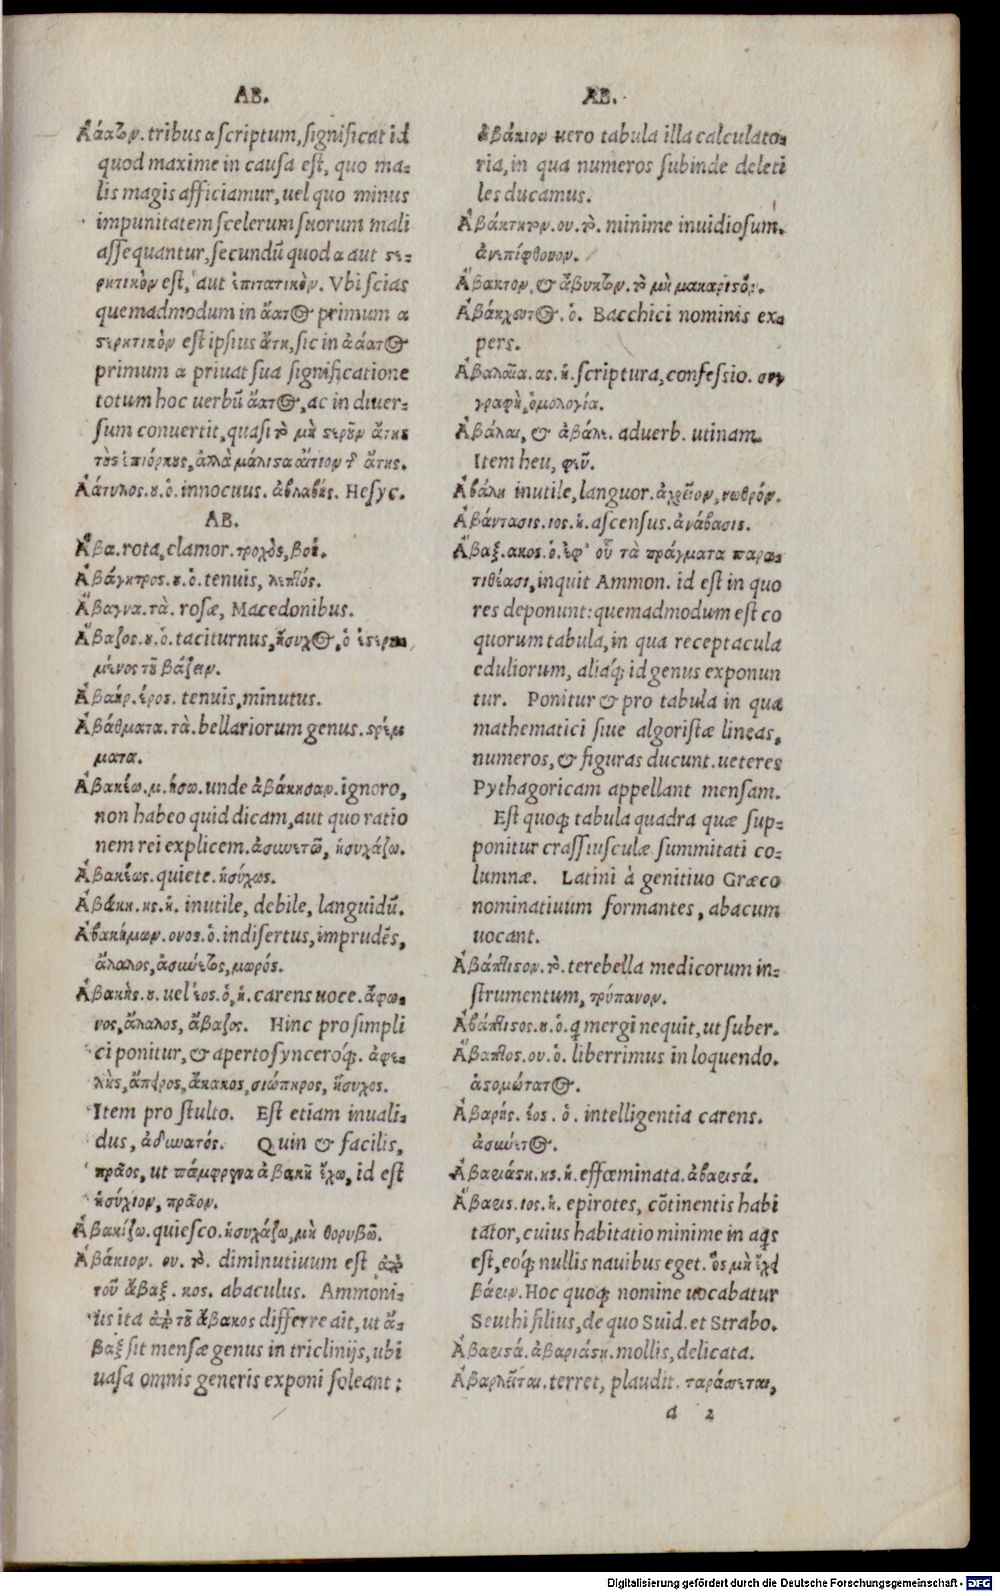 AB.
Ἀάατον. tribus α scriptum, significat id
quod maxime in causa est, quo ma-
lis magis afficiamur, uel quo minus
impunitatem scelerum suorum mali
assequantur, secundũ quod α aut στε-
ρητικὸν est, aut ἐπιτατικὸν. Vbi scias
quemadmodum in ἄατος primum α
στερητικὸν est ipsius ἄτη, sic in ἀάατος
primum α priuat sua significatione
totum hoc uerbũ ἄατος, ac in diuer-
sum conuertit, quasi τὸ μὴ στεροῦν ἄτης
τοὺς ἐπιόρκους, ἀλλὰ μάλιστα αἴτιον τῆς ἄτης.
Ἀάτυλος. ου. ὁ. innocuus. ἀβλαβής. Hesyc.
AB.
Ἄβα. rota, clamor. τροχὸς, βοή.
Ἀβάγητρος. ου. ὁ. tenuis, λεπτός.
Ἄβαγνα. τὰ. rosæ, Macedonibus.
Ἄβαζος. ου. ὁ. taciturnus, ἥσυχος, ὁ ἐστερη-
μένος τοῦ βάζειν.
Ἀβαήρ. έρος. tenuis, minutus.
Ἀβάθματα. τὰ. bellariorum genus. στρέμ-
ματα.
Ἀβακέω. μ. ήσω. unde ἀβάκησαν. ignoro,
non habeo quid dicam, aut quo ratio
nem rei explicem. ἀσυνετῶ, ἡσυχάζω.
Ἀβακέως. quiete. ἡσύχως.
Ἀβάκη. ης. ἡ. inutile, debile, languidũ.
Ἀβακήμων. ονος. ὁ. indisertus, imprudẽs,
ἄλαλος, ἀσύνετος, μωρός.
Ἀβακὴς. ου. uel έος. ὁ, ἡ. carens uoce. ἄφω-
νος, ἄλαλος, ἄβαζος. Hinc pro simpli
ci ponitur, & aperto synceroq́;. ἀφε-
λὴς, ἄπειρος, ἄκακος, σιώπηρος, ἥσυχος.
Item pro stulto. Est etiam inuali-
dus, ἀδύνατός. Quin & facilis,
πρᾶος, ut πάμφρηνα ἀβακῆ ἔχω, id est
ἡσύχιον, πρᾶον.
Ἀβακίζω. quiesco. ἡσυχάζω, μὴ θορυβῶ.
Ἀβάκιον. ου. τὸ. diminutiuum est ἀπὸ
τοῦ ἄβαξ. κος. abaculus. Ammoni-
us ita ἀπὸ τοῦ ἄβακος differre ait, ut ἄ-
βαξ sit mensæ genus in triclinijs, ubi
uasa omnis generis exponi soleant:
AB.
ἀβάκιον uero tabula illa calculato-
ria, in qua numeros subinde deleti
les ducamus.
Ἀβάκτητον. ου. τὸ. minime inuidiosum.
ἀνεπίφθονον.
Ἄβακτον, & ἄβυκτον. τὸ μὴ μακαριστόν.
Ἀβάκχευτος. ὁ. Bacchici nominis ex-
pers.
Ἀβαλαῖα. ας. ἡ. scriptura, confessio. συγ
γραφὴ, ὁμολογία.
Ἀβάλαι, & ἀβάλε. aduerb. utinam.
Item heu, φεῦ.
Ἀβάλη inutile, languor. ἀχρεῖον, νωθρόν.
Ἀβάντασις. ιος. ἡ. ascensus. ἀνάβασις.
Ἄβαξ. ακος. ὁ. ἐφ᾽ οὗ τὰ πράγματα παρα-
τιθέασι, inquit Ammon. id est in quo
res deponunt: quemadmodum est co
quorum tabula, in qua receptacula
eduliorum, aliaq́; id genus exponun
tur. Ponitur & pro tabula in qua
mathematici siue algoristæ lineas,
numeros, & figuras ducunt. ueteres
Pythagoricam appellant mensam.
Est quoq; tabula quadra quæ sup-
ponitur crassiusculæ summitati co-
lumnæ. Latini à genitiuo Græco
nominatiuum formantes, abacum
uocant.
Ἀβάπτιστον. τὸ. terebella medicorum in-
strumentum, τρύπανον.
Ἀβάπτιστος. ου. ὁ. q̃ mergi nequit, ut suber.
Ἄβαπτος. ου. ὁ. liberrimus in loquendo.
ἀστομώτατος.
Ἀβαρής. έος. ὁ. intelligentia carens.
ἀσύνετος.
Ἀβαριάστη. ης. ἡ. effœminata. ἀβαριστά.
Ἄβαρις. ιος. ἡ. epirotes, cõtinentis habi
tator, cuius habitatio minime in aq̃s
est, eoq́; nullis nauibus eget. ὃς μὴ ἔχει
βάριν. Hoc quoq; nomine uocabatur
Seuthi filius, de quo Suid. et Strabo.
Ἀβαριστά. ἀβαριάστη. mollis, delicata.
Ἀβαρλεῖται. terret, plaudit. ταράσσεται,
a 2
Digitalisierung gefördert durch die Deutsche Forschungsgemeinschaft - DFG